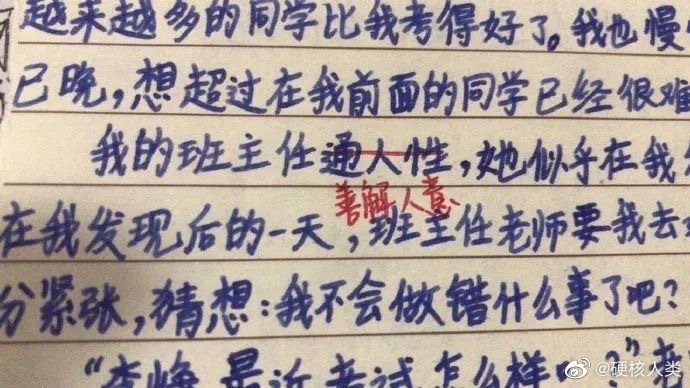 越来越多的同学比我考得好了。我也慢
已晚，想超过在我前面的同学已经很难
我的班主任通人性，她似乎在我
善解人意
在我发现后的一天，班主任老师要我去
分紧张，猜想：我不会做错什么事了吧？
最近考试怎么样
@硬核人类